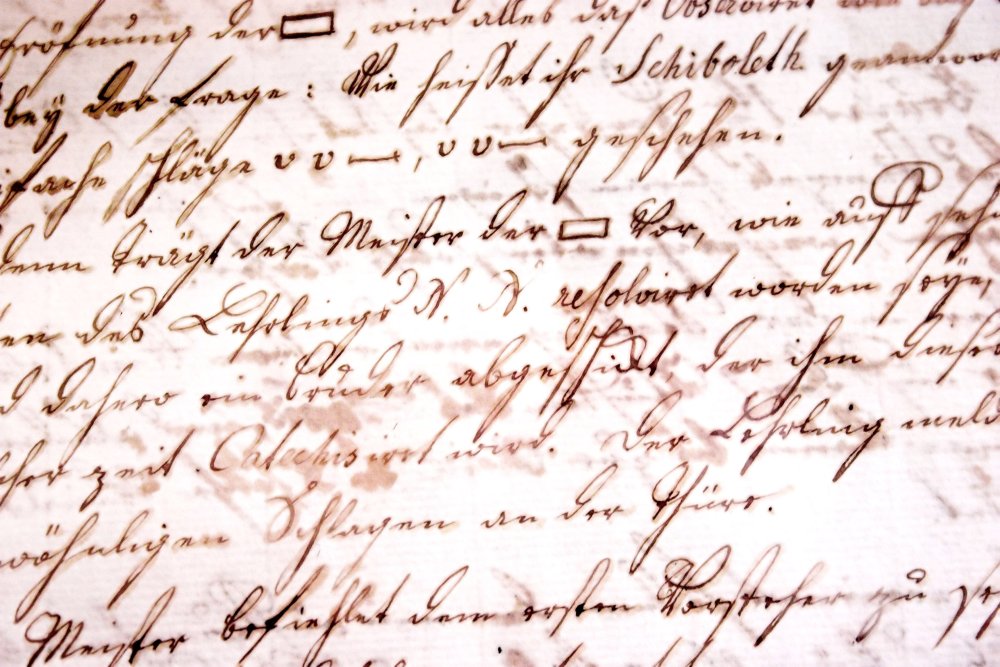 Eröfnung der ▭, wird alles daß observiret
bey der Frage: Wie heisset ihr Schiboleth geantwor
fache Schläge υ υ —, υ υ — geschehen.
denn trägt der Meister der ▭ vor, wie auf
en des Lehrlings N. N. resolviret worden seye,
d dahero ein Bruder abgeschickt, der ihm dieses
cher zeit Catechisiret wird. Der Lehrling meld
wöhnligen Schlagen an der Thüre.
Meister befiehlet dem ersten Vorsteher zu